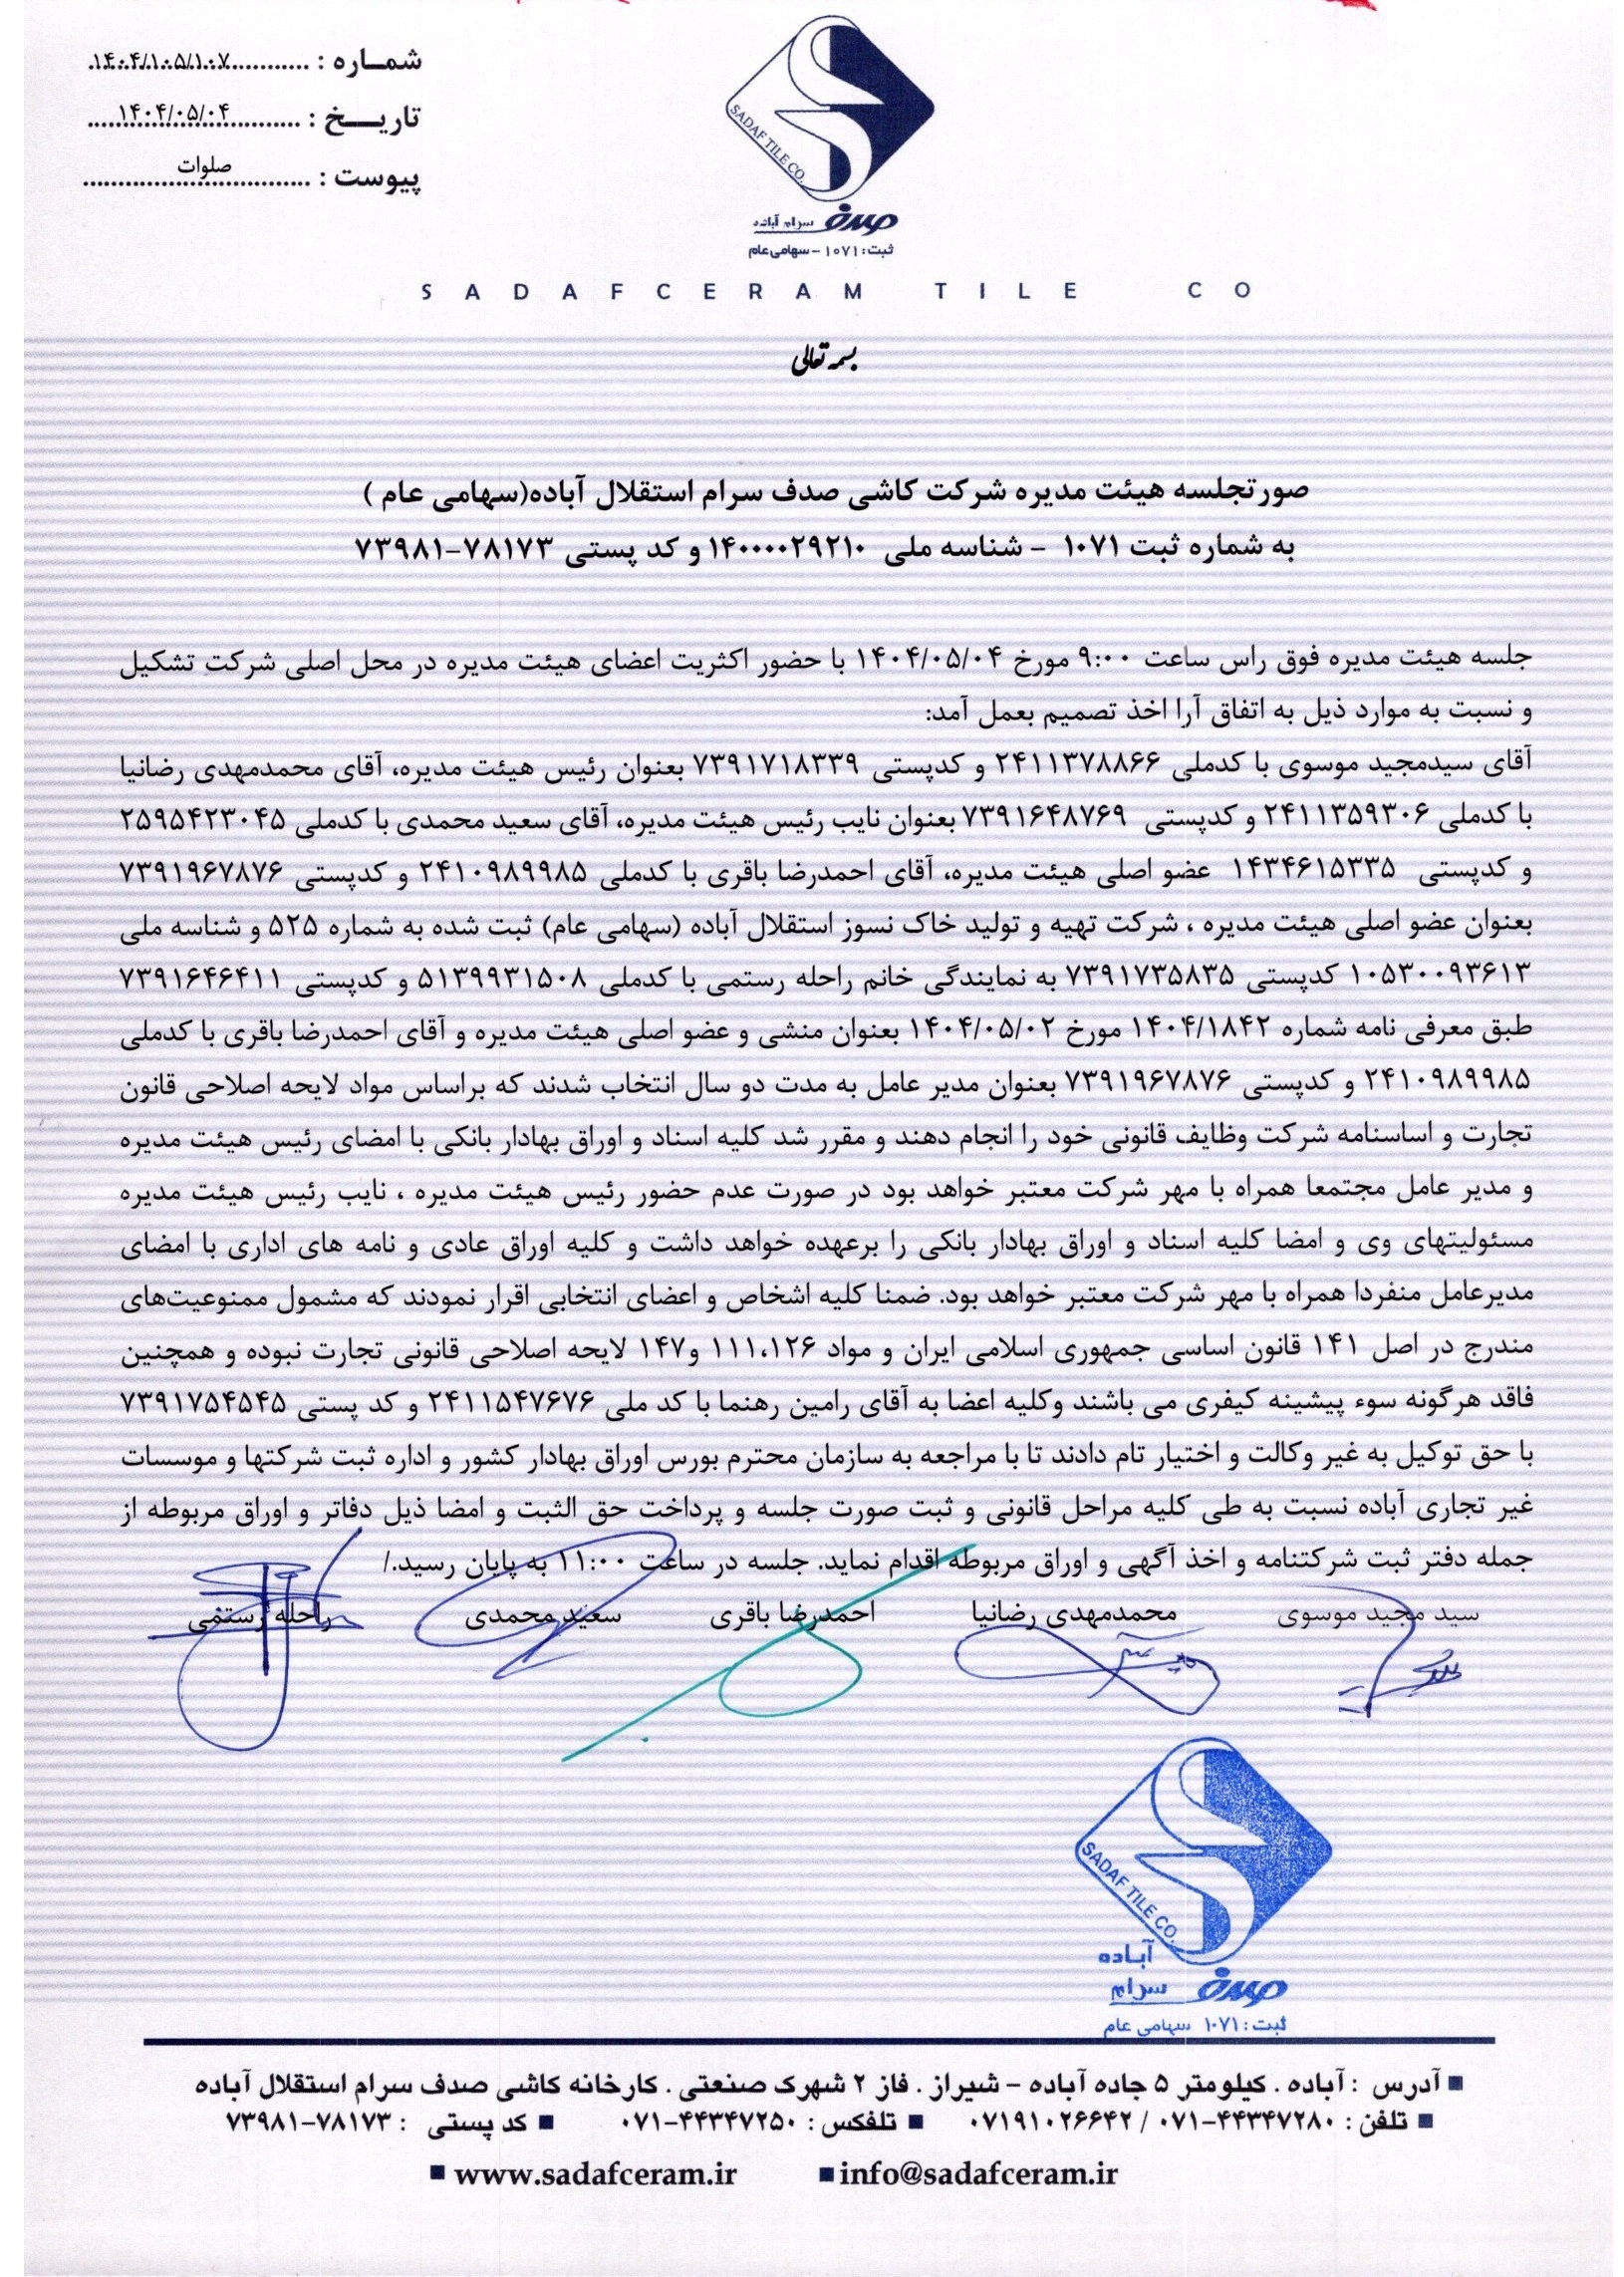 شماره : ۱۴۰۴/۱۰۵/۱۰۷
تاریخ : ۱۴۰۴/۰۵/۰۴
پیوست : صلوات
SADAF TILE CO.
صدف سرام آباده
ثبت: ۱۰۷۱ - سهامی عام
SADAFCERAM TILE CO
بسمه تعالی
صورتجلسه هیئت مدیره شرکت کاشی صدف سرام استقلال آباده(سهامی عام )
به شماره ثبت ۱۰۷۱ - شناسه ملی ۱۴۰۰۰۰۲۹۲۱۰ و کد پستی ۷۸۱۷۳-۷۳۹۸۱
جلسه هیئت مدیره فوق راس ساعت ۹:۰۰ مورخ ۱۴۰۴/۰۵/۰۴ با حضور اکثریت اعضای هیئت مدیره در محل اصلی شرکت تشکیل
و نسبت به موارد ذیل به اتفاق آرا اخذ تصمیم بعمل آمد:
آقای سیدمجید موسوی با کدملی ۲۴۱۱۳۷۸۸۶۶ و کدپستی ۷۳۹۱۷۱۸۳۳۹ بعنوان رئیس هیئت مدیره، آقای محمدمهدی رضانیا
با کدملی ۲۴۱۱۳۵۹۳۰۶ و کدپستی ۷۳۹۱۶۴۸۷۶۹ بعنوان نایب رئیس هیئت مدیره، آقای سعید محمدی با کدملی ۲۵۹۵۴۲۳۰۴۵
و کدپستی ۱۴۳۴۶۱۵۳۳۵ عضو اصلی هیئت مدیره، آقای احمدرضا باقری با کدملی ۲۴۱۰۹۸۹۹۸۵ و کدپستی ۷۳۹۱۹۶۷۸۷۶
بعنوان عضو اصلی هیئت مدیره ، شرکت تهیه و تولید خاک نسوز استقلال آباده (سهامی عام) ثبت شده به شماره ۵۲۵ و شناسه ملی
۱۰۵۳۰۰۹۳۶۱۳ کدپستی ۷۳۹۱۷۳۵۸۳۵ به نمایندگی خانم راحله رستمی با کدملی ۵۱۳۹۹۳۱۵۰۸ و کدپستی ۷۳۹۱۶۴۶۴۱۱
طبق معرفی نامه شماره ۱۴۰۴/۱۸۴۲ مورخ ۱۴۰۴/۰۵/۰۲ بعنوان منشی و عضو اصلی هیئت مدیره و آقای احمدرضا باقری با کدملی
۲۴۱۰۹۸۹۹۸۵ و کدپستی ۷۳۹۱۹۶۷۸۷۶ بعنوان مدیر عامل به مدت دو سال انتخاب شدند که براساس مواد لایحه اصلاحی قانون
تجارت و اساسنامه شرکت وظایف قانونی خود را انجام دهند و مقرر شد کلیه اسناد و اوراق بهادار بانکی با امضای رئیس هیئت مدیره
و مدیر عامل مجتمعا همراه با مهر شرکت معتبر خواهد بود در صورت عدم حضور رئیس هیئت مدیره ، نایب رئیس هیئت مدیره
مسئولیتهای وی و امضا کلیه اسناد و اوراق بهادار بانکی را برعهده خواهد داشت و کلیه اوراق عادی و نامه های اداری با امضای
مدیرعامل منفردا همراه با مهر شرکت معتبر خواهد بود. ضمنا کلیه اشخاص و اعضای انتخابی اقرار نمودند که مشمول ممنوعیت‌های
مندرج در اصل ۱۴۱ قانون اساسی جمهوری اسلامی ایران و مواد ۱۱۱،۱۲۶ و۱۴۷ لایحه اصلاحی قانونی تجارت نبوده و همچنین
فاقد هرگونه سوء پیشینه کیفری می باشند وکلیه اعضا به آقای رامین رهنما با کد ملی ۲۴۱۱۵۴۷۶۷۶ و کد پستی ۷۳۹۱۷۵۴۵۴۵
با حق توکیل به غیر وکالت و اختیار تام دادند تا با مراجعه به سازمان محترم بورس اوراق بهادار کشور و اداره ثبت شرکتها و موسسات
غیر تجاری آباده نسبت به طی کلیه مراحل قانونی و ثبت صورت جلسه و پرداخت حق الثبت و امضا ذیل دفاتر و اوراق مربوطه از
جمله دفتر ثبت شرکتنامه و اخذ آگهی و اوراق مربوطه اقدام نماید. جلسه در ساعت ۱۱:۰۰ به پایان رسید./
سید مجید موسوی محمدمهدی رضانیا احمدرضا باقری سعید محمدی راحله رستمی
SADAF TILE CO.
آباده
صدف سرام
ثبت: ۱۰۷۱ سهامی عام
آدرس : آباده . کیلومتر ۵ جاده آباده - شیراز . فاز ۲ شهرک صنعتی . کارخانه کاشی صدف سرام استقلال آباده
تلفن : ۰۷۱-۴۴۳۴۷۲۸۰ / ۰۷۱۹۱۰۲۶۶۴۲ تلفکس : ۰۷۱-۴۴۳۴۷۲۵۰ کد پستی : ۷۸۱۷۳-۷۳۹۸۱
www.sadafceram.ir info@sadafceram.ir